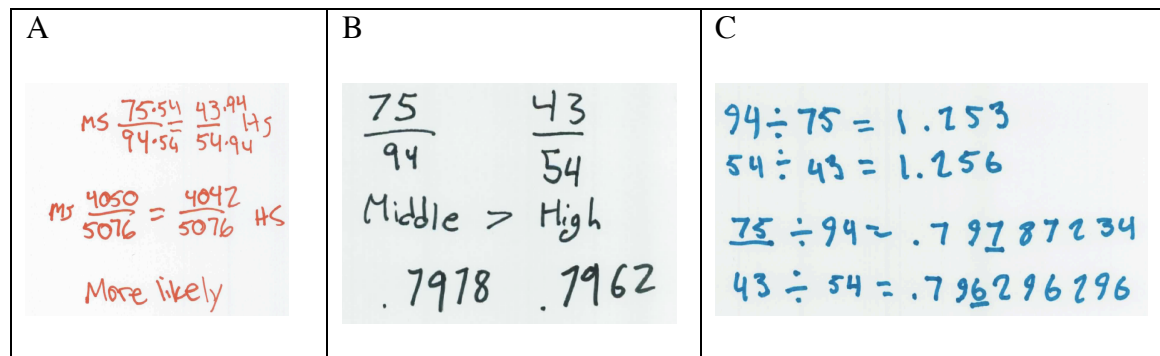 A
MS 75·54/94·54 = 43·94/54·94 HS
MS 4050/5076 = 4042/5076 HS
More likely
B
75/94 43/54
Middle > High
.7978 .7962
C
94 ÷ 75 = 1.253
54 ÷ 43 = 1.256
75 ÷ 94 = .79787234
43 ÷ 54 = .796296296